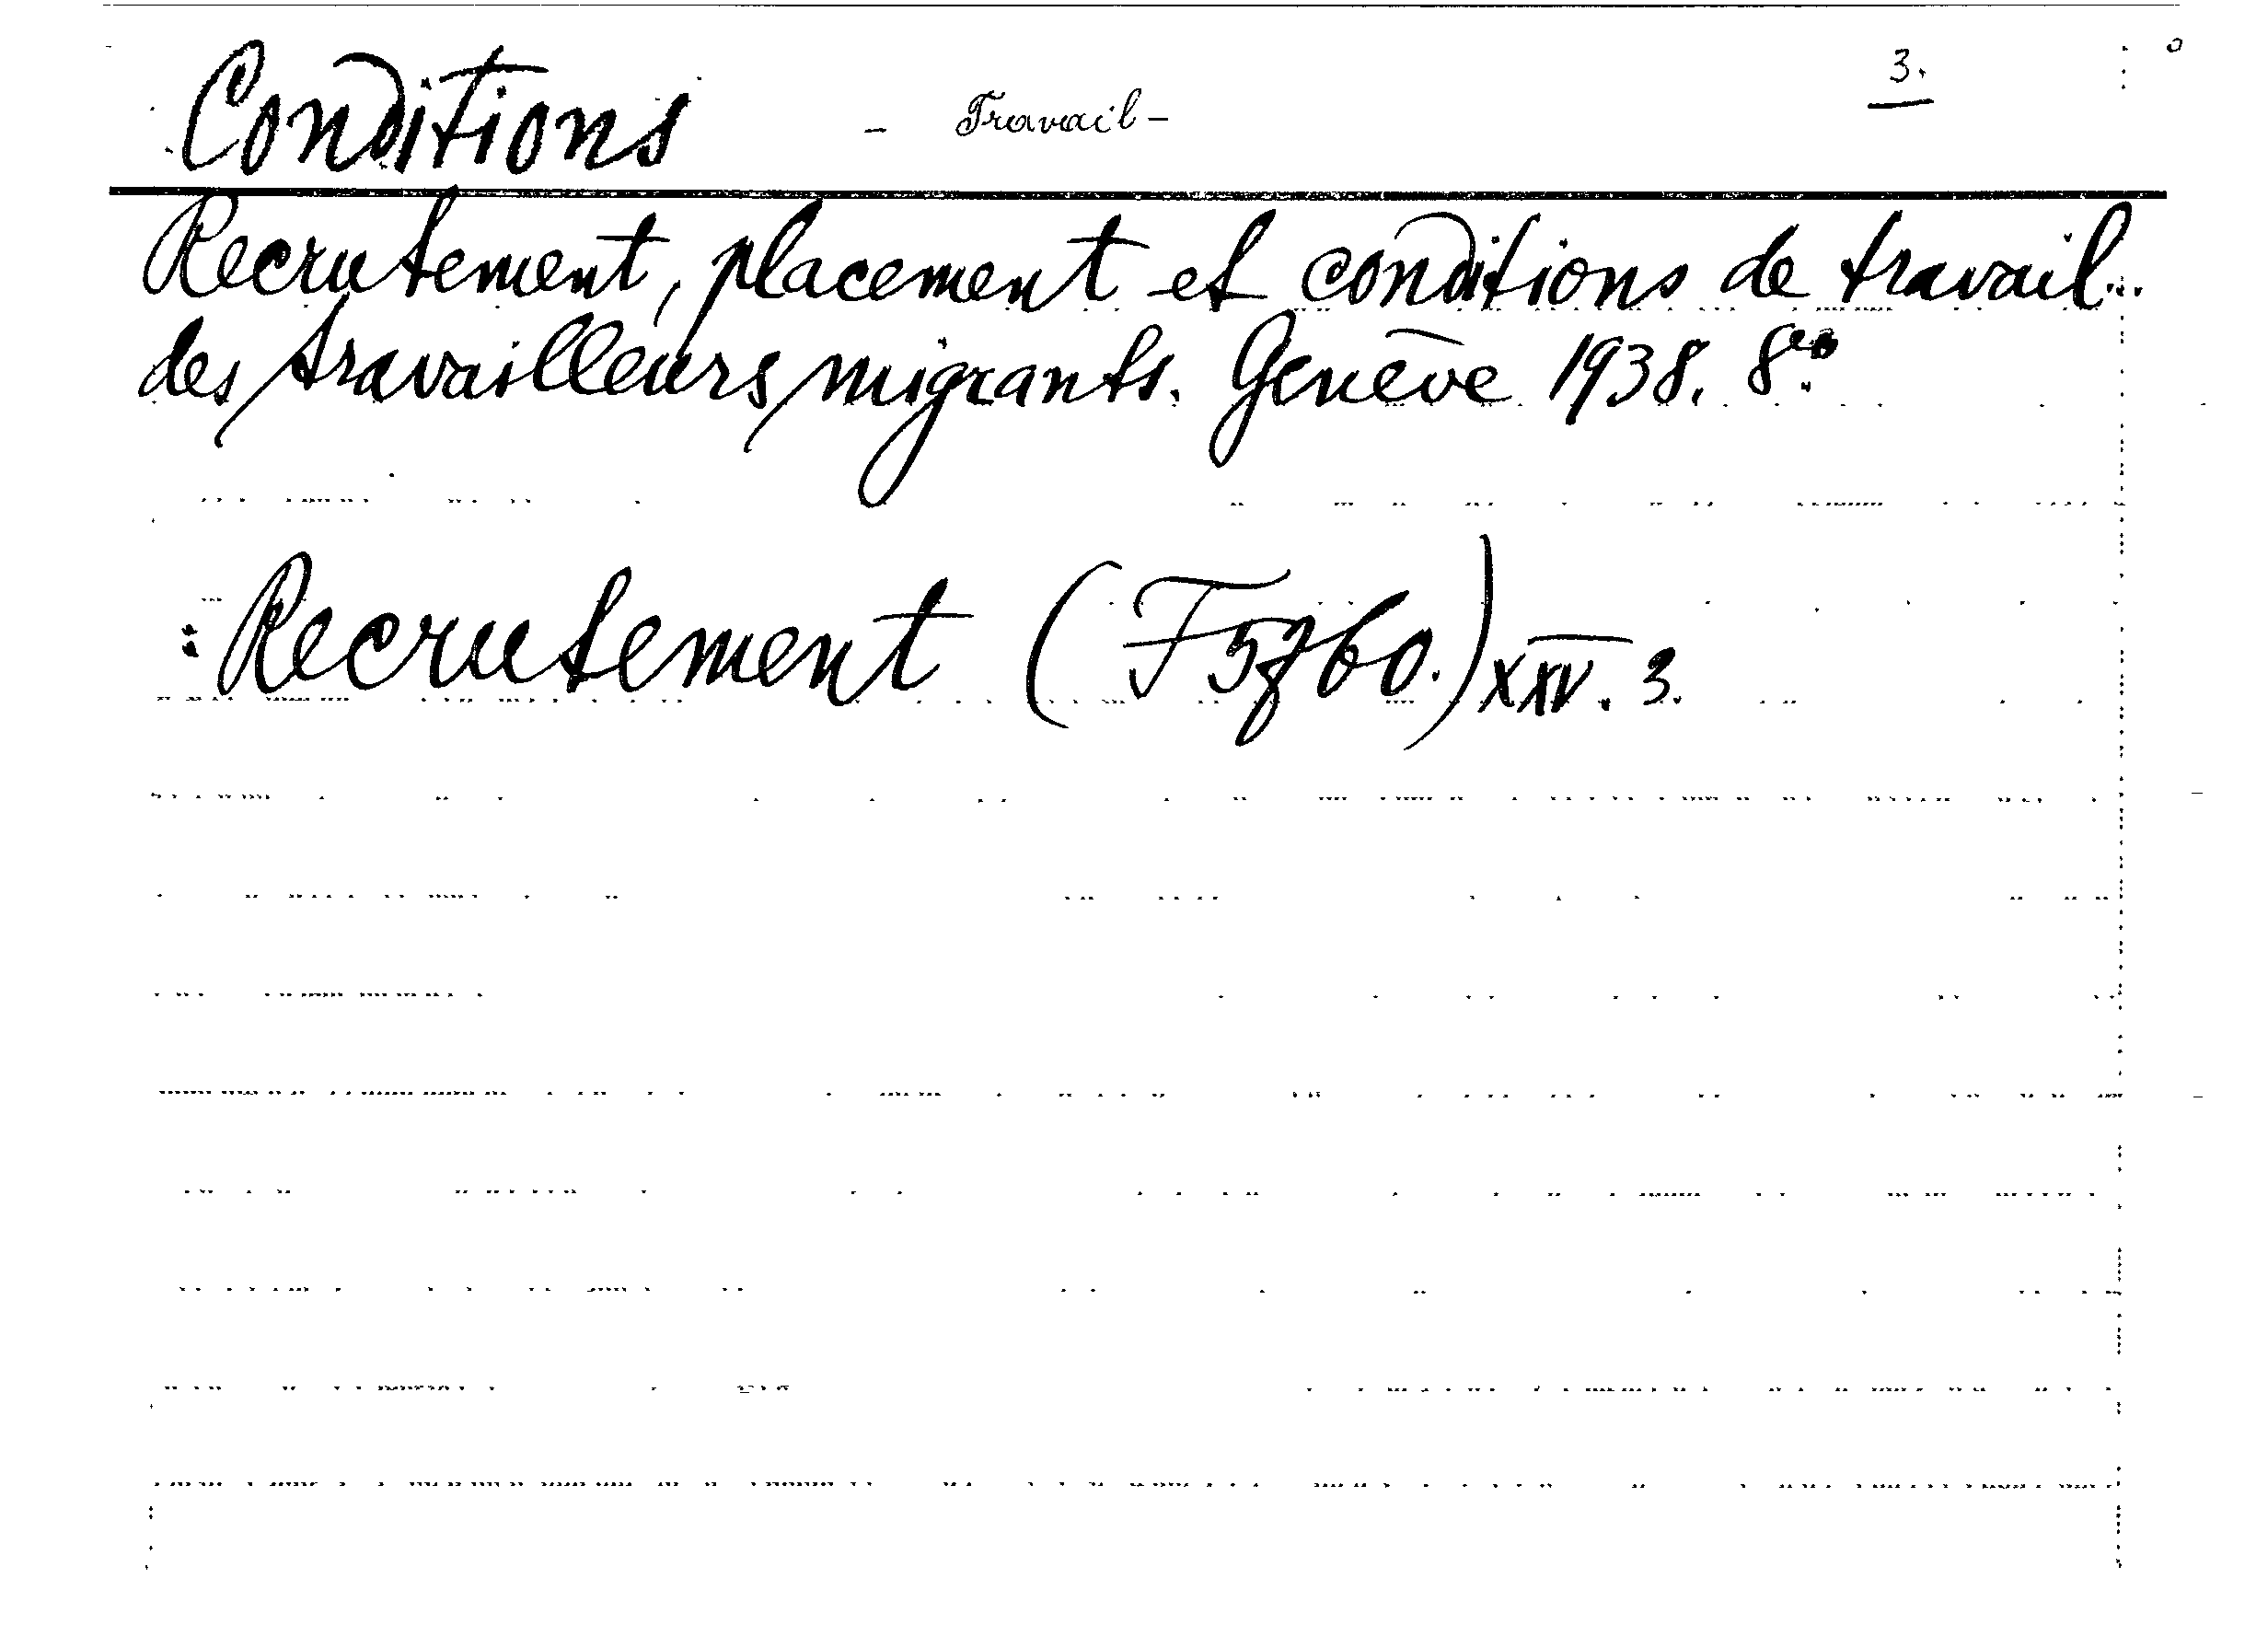 Conditions - Travail - 3.
Recrutement, placement et conditions de travail
des travailleurs migrants. Genève 1938. 8º
: Recrutement (F5z60.) XXV. 3.